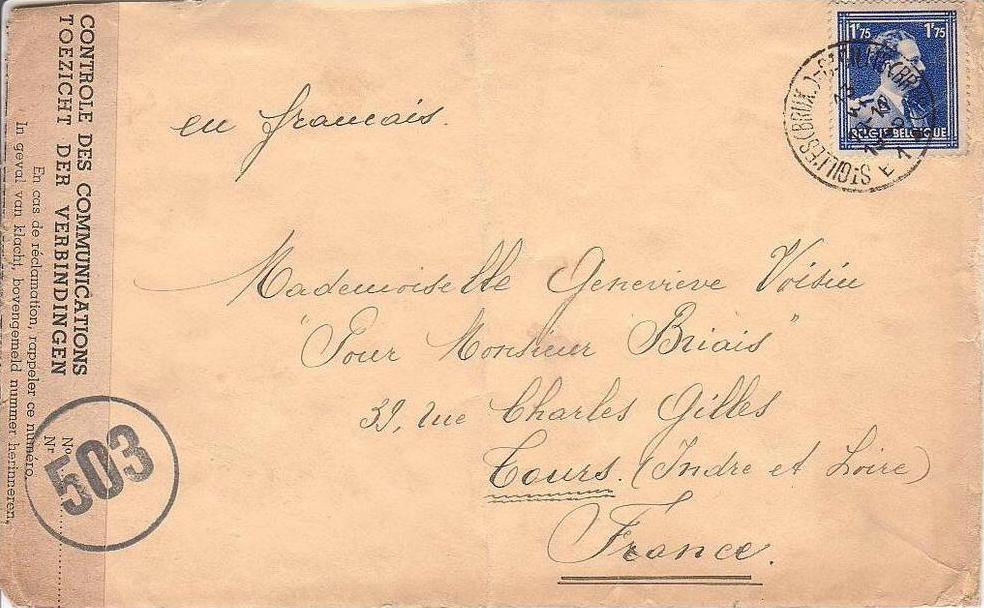 CONTROLE DES COMMUNICATIONS
TOEZICHT DER VERBINDINGEN
En cas de réclamation, rappeler ce numéro.
In geval van klacht, bovengemeld nummer herinneren.
No
Nr
503
en francais.
1F75 1F75
BELGIE-BELGIQUE
ST GILLES (BRUX.)
Mademoiselle Geneviève Voisin
"Pour Monsieur Briais"
39, rue Charles Gilles
Tours. (Indre et Loire)
France.